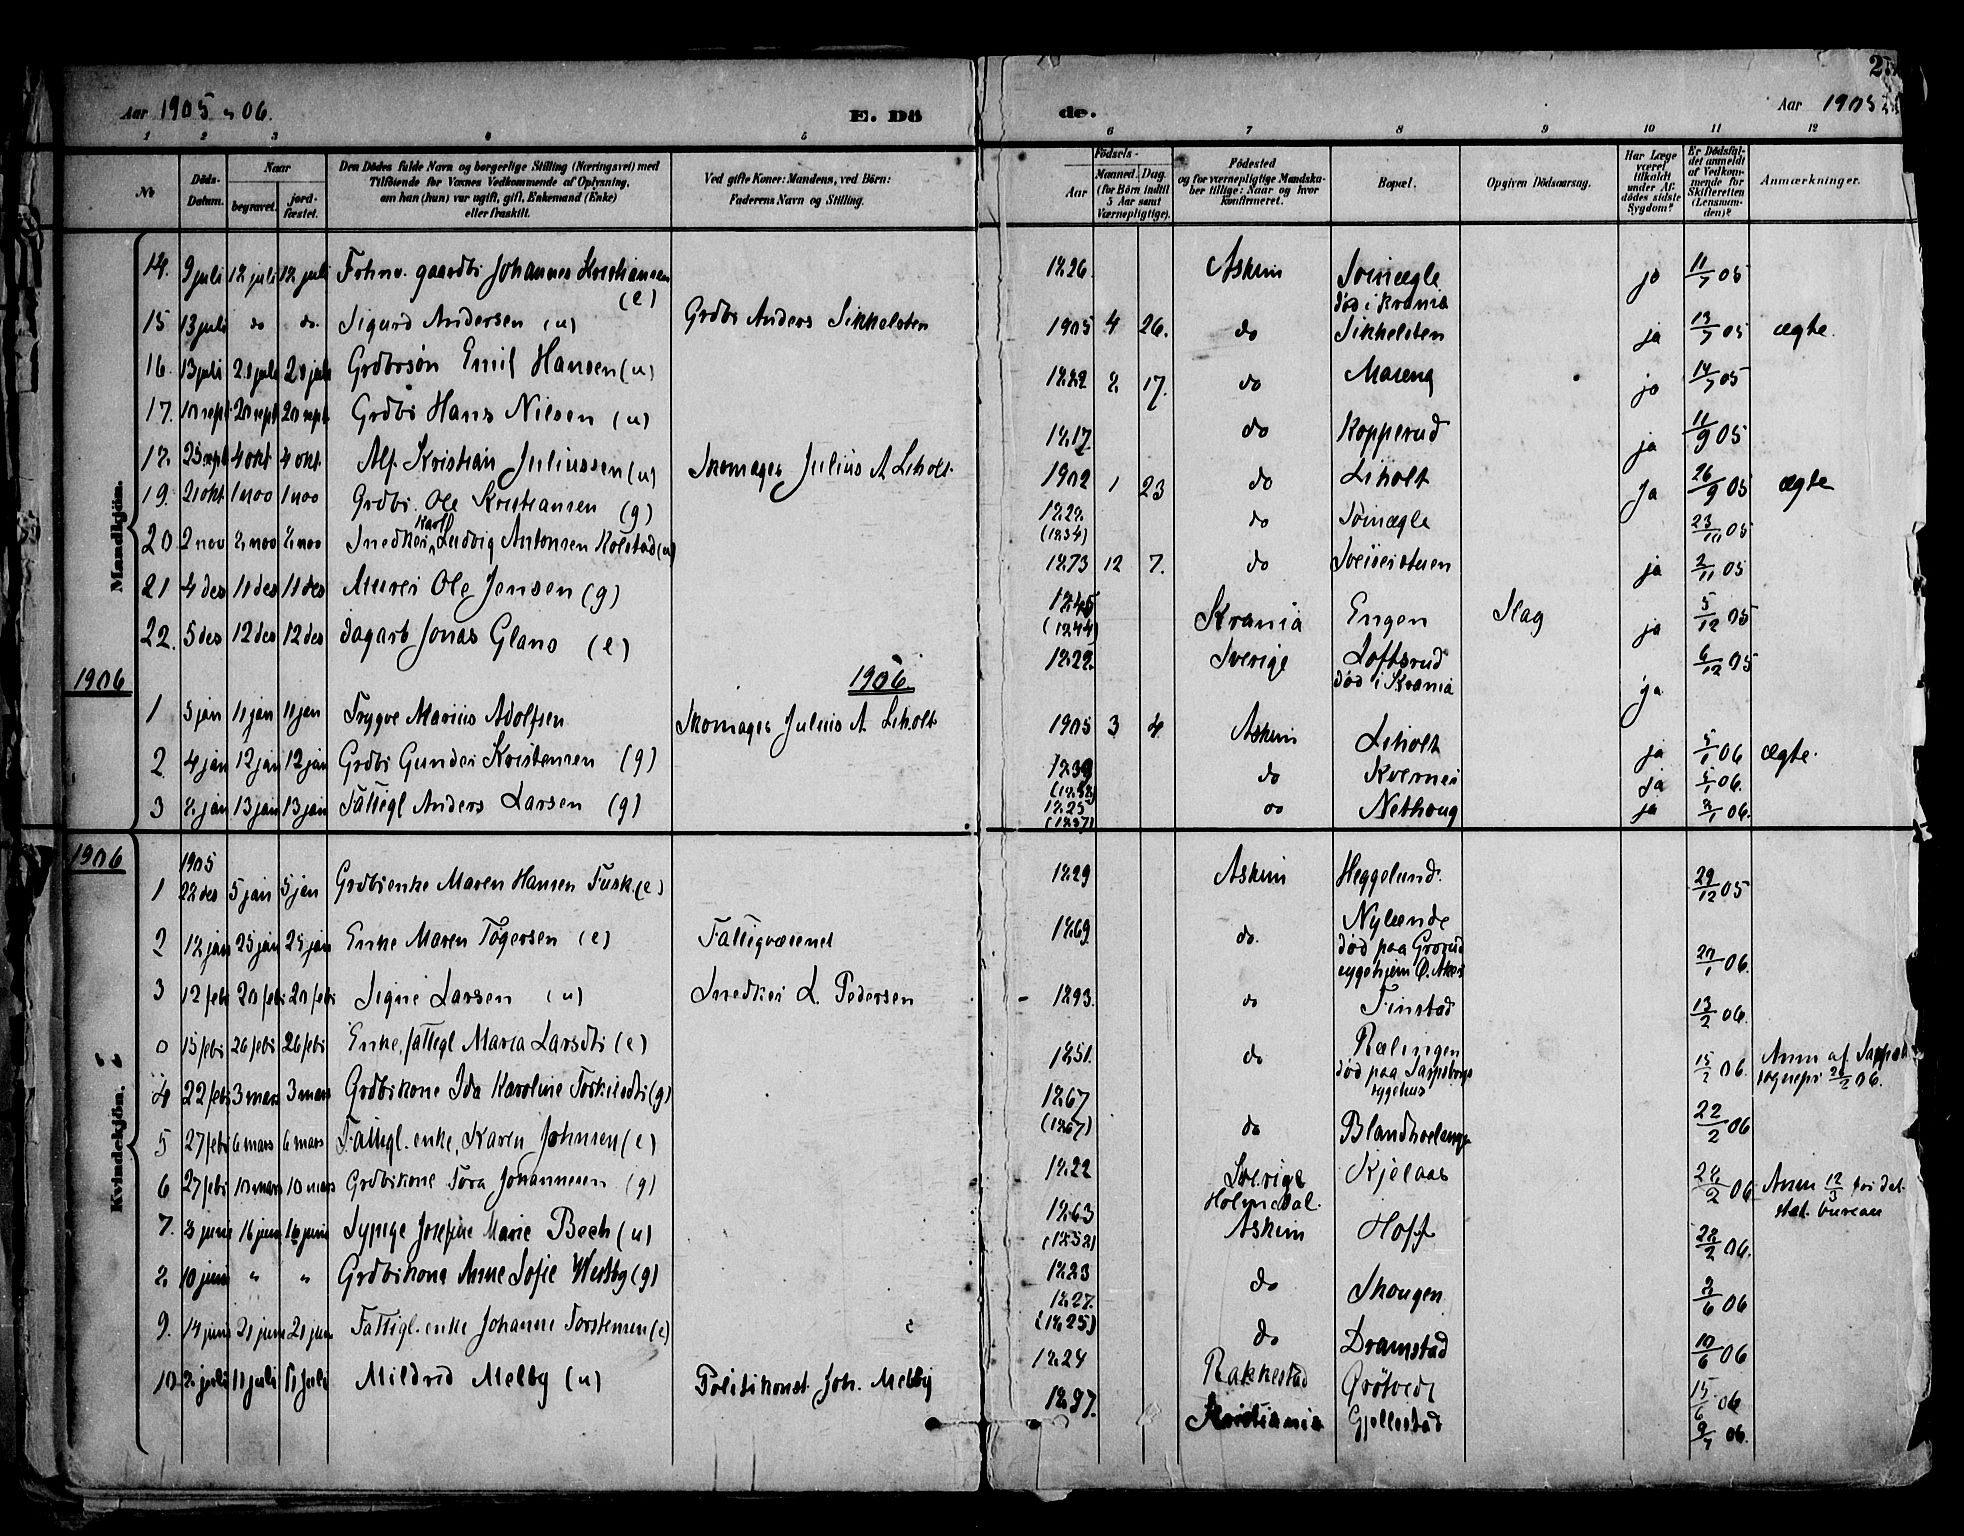 Aar 1905 og 06.
E. Dö
de.
Aar 1905
1 2 3 4 5 6 7 8 9 10 11 12
No
Döds-Datum.
Naar
begravet.
jord-fæstet.
Den Dödes fulde Navn og borgerlige Stilling (Næringsvei) med
Tilföiende for Voxnes Vedkommende af Oplysning,
om han (hun) var ugift, gift, Enkemand (Enke)
eller fraskilt.
Ved gifte Koner: Mandens, ved Börn:
Faderens Navn og Stilling.
Födsels-
Aar
Maaned. Dag.
(for Börn indtil
5 Aar samt
Værnepligtige).
Födested
og for værnepligtige Mandska-
ber tillige: Naar og hvor
konfirmeret.
Bopæl.
Opgiven Dödsaarsag.
Har Læge
været
tilkaldt
under Af-
dödes sidste
Sygdom?
Er Dödsfal-
det anmeldt
af Vedkom-
mende for
Skifteretten
(Lensman-
den)?
Anmærkninger.
Mandkjön.
14. 9 juli 12 juli 12 juli Forhnv. gaardbr Johannes Kristiansen (e) 1826. Askim død i Krania ja 11/7 05
15 13 juli do do Sigurd Andersen (u) Grdbr Anders Sikkelsten 1905 4 26. do Sikkelsten ja 13/7 05 ægte.
16. 13 juli 20 juli 20 juli Grdbrsøn Emil Hansen (u) 1882 2 17. do Mareng ja 14/7 05
17. 10 sept 20 sept 20 sept Grdbr Hans Nilsen (u) 1817. do Kopperud ja 11/9 05
18. 25 sept 4 okt 4 okt. Alf Kristian Juliussen (u) Skomager Julius A Liholt. 1902 1 23 do Liholt ja 26/9 05 ægte
19. 21 okt 1 nov 1 nov Grdbr. Ole Kristiansen (g) 1828. (1834) do 23/10 05
20 2 nov 8 nov 8 nov Snedker Karl Ludvig Antonsen Kolstad (u) 1873 12 7. do ja 2/11 05
21 4 des 11 des 11 des Murer Ole Jensen (g) 1845 (1844) Krania Engen Slag ja 5/12 05
22. 5 des 12 des 12 des dagarb Jonas Glano (e) 1828. Sverige Loftsrud død i Krania ja 6/12 05
1906
1906.
1 5 jan 11 jan 11 jan Trygve Marius Adolfsen Skomager Julius A Liholt 1905 3 4 Askim Liholt ja 5/1 06 ægte.
2 4 jan 12 jan 12 jan Grdbr Gunder Kristensen (g) 1839 do ja 5/1 06.
3 8 jan 13 jan 13 jan Fattigl Anders Larsen (g) 1825 (1837) do Nethoug ja 8/1 06.
1906
Kvindekjön.
1905
1 22 des 5 jan 5 jan Grdbrenke Maren Hansen Fusk. (e) 1829 Askim Heggelund. 29/12 05
2 18 jan 25 jan 25 jan Enke Maren Tøgersen (e) Fattigvæsenet 1869 do. Nylænde død paa Grorud sygehjem Ø. Aker 20/1 06.
3 12 febr 20 febr 20 febr Signe Larsen (u) Snedker L. Pedersen 1893. do Finstad 13/2 06.
0 15 febr 26 febr 26 febr Enke, fattigl Maria Larsdtr (e) 1851. do Rælingen død paa Sarpsborgs sygehus 15/2 06. Anm af sognepr 26/2 06.
4 22 febr 3 mars 3 mars Grdbrkone Ida Karoline Torkildsdtr (g) 1867 (1867) do 22/2 06
5 27 febr 6 mars 6 mars Fattigl. enke, Karen Johnsen (e) 1822 Sverige Holmedal. Kjelaas 28/2 06 Anm 12/3 for det stat. bureau
6 27 febr 10 mars 10 mars Grdbrkone Tora Johannesen (g) 1863 (1852) Askim Hoff 28/2 06.
7. 8 juni 16 juni 16 juni Sypige Josefine Marie Bech (u) 1823 do Skougen 8/6 06
8. 10 juni " " Grdbrkone Anne Sofie Westby (g) 1827. (1825) do Dramstad 10/6 06
9. 14 juni 21 juni 21 juni Fattigl. enke Johanne Torstensen (e) 1824 Rakkestad Grøtvedt 15/6 06
10 8 juli 11 juli 11 juli Mildrid Melby (u) Politikonst. Joh. Melby 1897. Kristiania Gjellestad 9/7 06.